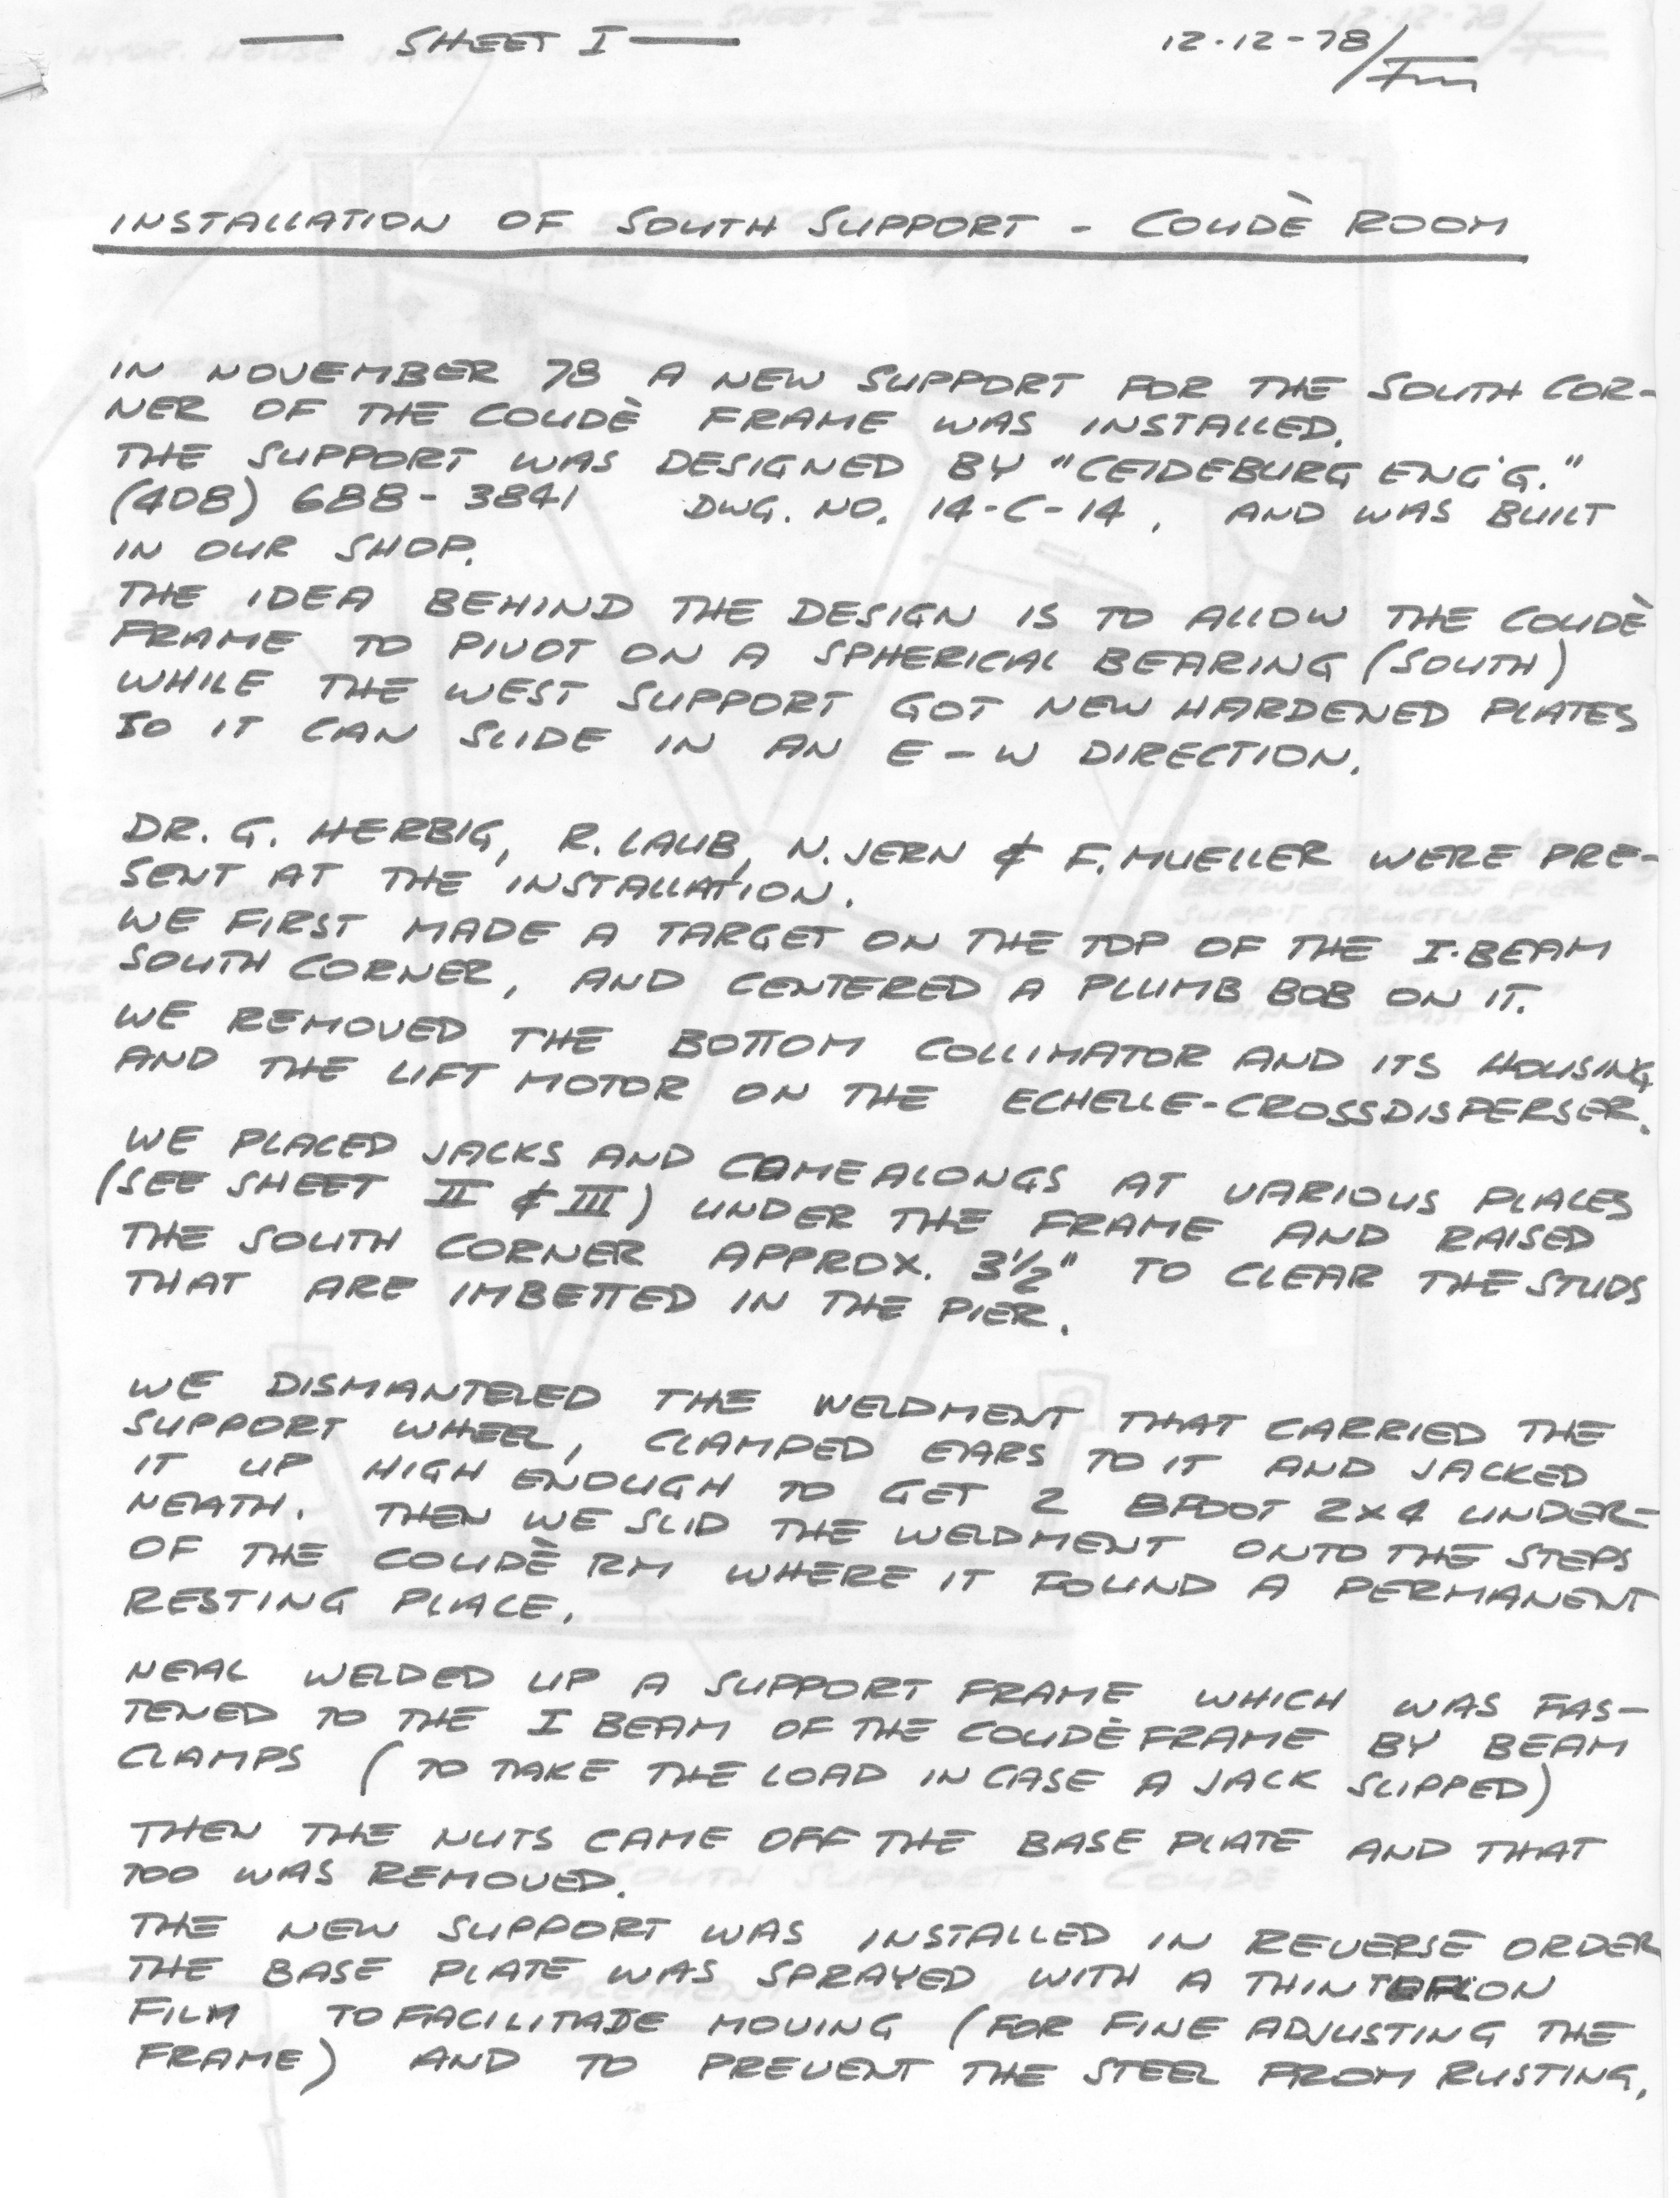 — SHEET I — 12-12-78/Fm
INSTALLATION OF SOUTH SUPPORT - COUDÈ ROOM
IN NOVEMBER 78 A NEW SUPPORT FOR THE SOUTH COR-
NER OF THE COUDÈ FRAME WAS INSTALLED.
THE SUPPORT WAS DESIGNED BY "CEIDEBURG ENG'G."
(408) 688-3841 DWG. NO. 14-C-14, AND WAS BUILT
IN OUR SHOP.
THE IDEA BEHIND THE DESIGN IS TO ALLOW THE COUDÈ
FRAME TO PIVOT ON A SPHERICIAL BEARING (SOUTH)
WHILE THE WEST SUPPORT GOT NEW HARDENED PLATES
SO IT CAN SLIDE IN AN E-W DIRECTION.
DR. G. HERBIG, R. LAUB, N. JERN & F. MUELLER WERE PRE-
SENT AT THE INSTALLATION.
WE FIRST MADE A TARGET ON THE TOP OF THE I-BEAM
SOUTH CORNER, AND CENTERED A PLUMB BOB ON IT.
WE REMOVED THE BOTTOM COLLIMATOR AND ITS HOUSING
AND THE LIFT MOTOR ON THE ECHELLE-CROSSDISPERSER.
WE PLACED JACKS AND COMEALONGS AT VARIOUS PLACES
(SEE SHEET II & III) UNDER THE FRAME AND RAISED
THE SOUTH CORNER APPROX. 3½" TO CLEAR THE STUDS
THAT ARE IMBETTED IN THE PIER.
WE DISMANTELED THE WELDMENT THAT CARRIED THE
SUPPORT WHEEL, CLAMPED EARS TO IT AND JACKED
IT UP HIGH ENOUGH TO GET 2 8FOOT 2x4 UNDER-
NEATH. THEN WE SLID THE WELDMENT ONTO THE STEPS
OF THE COUDÈ RM WHERE IT FOUND A PERMANENT
RESTING PLACE.
NEAL WELDED UP A SUPPORT FRAME WHICH WAS FAS-
TENED TO THE I BEAM OF THE COUDÈ FRAME BY BEAM
CLAMPS (TO TAKE THE LOAD IN CASE A JACK SLIPPED)
THEN THE NUTS CAME OFF THE BASE PLATE AND THAT
TOO WAS REMOVED.
THE NEW SUPPORT WAS INSTALLED IN REVERSE ORDER
THE BASE PLATE WAS SPRAYED WITH A THIN TEFLON
FILM TO FACILITATE MOVING (FOR FINE ADJUSTING THE
FRAME) AND TO PREVENT THE STEEL FROM RUSTING.